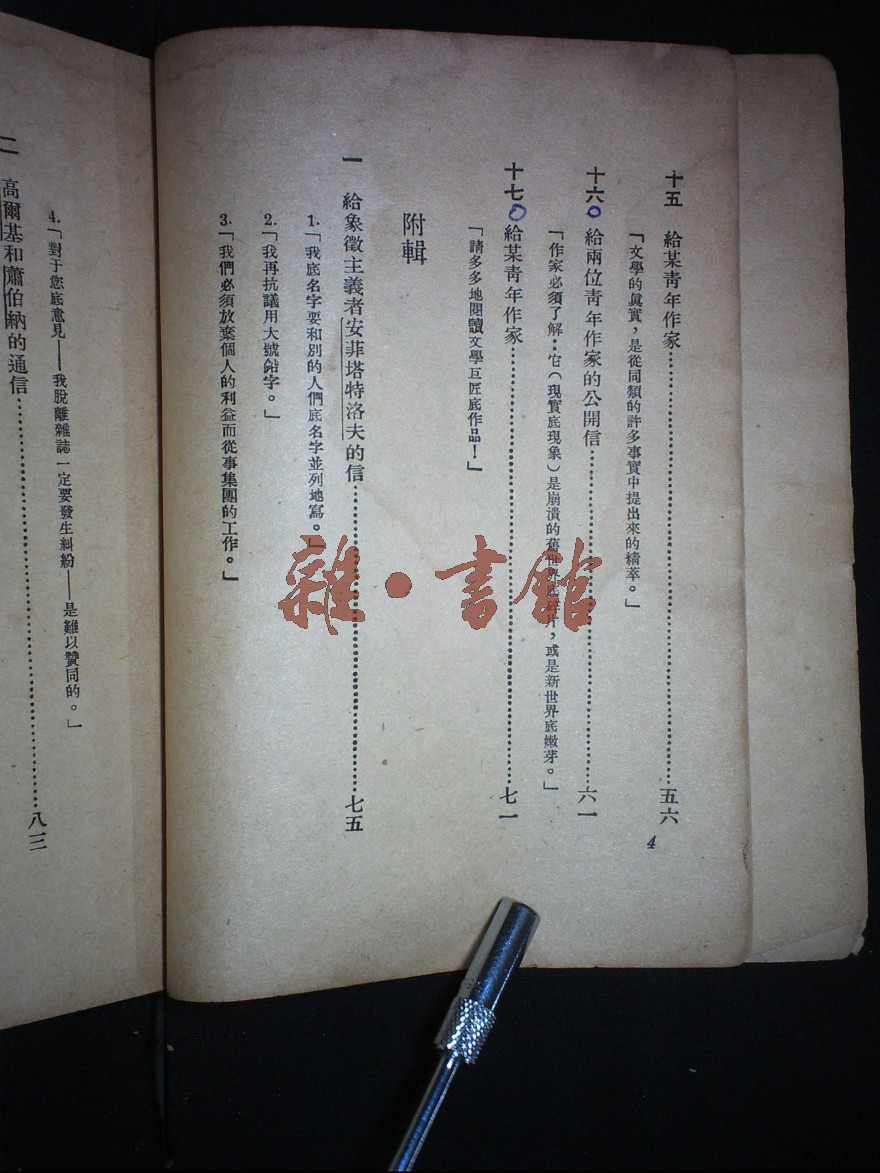 十五 給某靑年作家……五六
「文學的眞實，是從同類的許多事實中提出來的精萃。」
十六 給兩位靑年作家的公開信……六一
「作家必須了解：它（現實底現象）是崩潰的舊世界底碎片，或是新世界底嫩芽。」
十七 給某靑年作家……七一
「請多多地閱讀文學巨匠底作品！」
附輯
一 給象徵主義者安菲塔特洛夫的信……七五
1.「我底名字要和別的人們底名字並列地寫。」
2.「我再抗議用大號鉛字。」
3.「我們必須放棄個人的利益而從事集團的工作。」
4
4.「對于您底意見——我脫離雜誌一定要發生糾紛——是難以贊同的。」
二 高爾基和蕭伯納的通信……八三
雜·書館